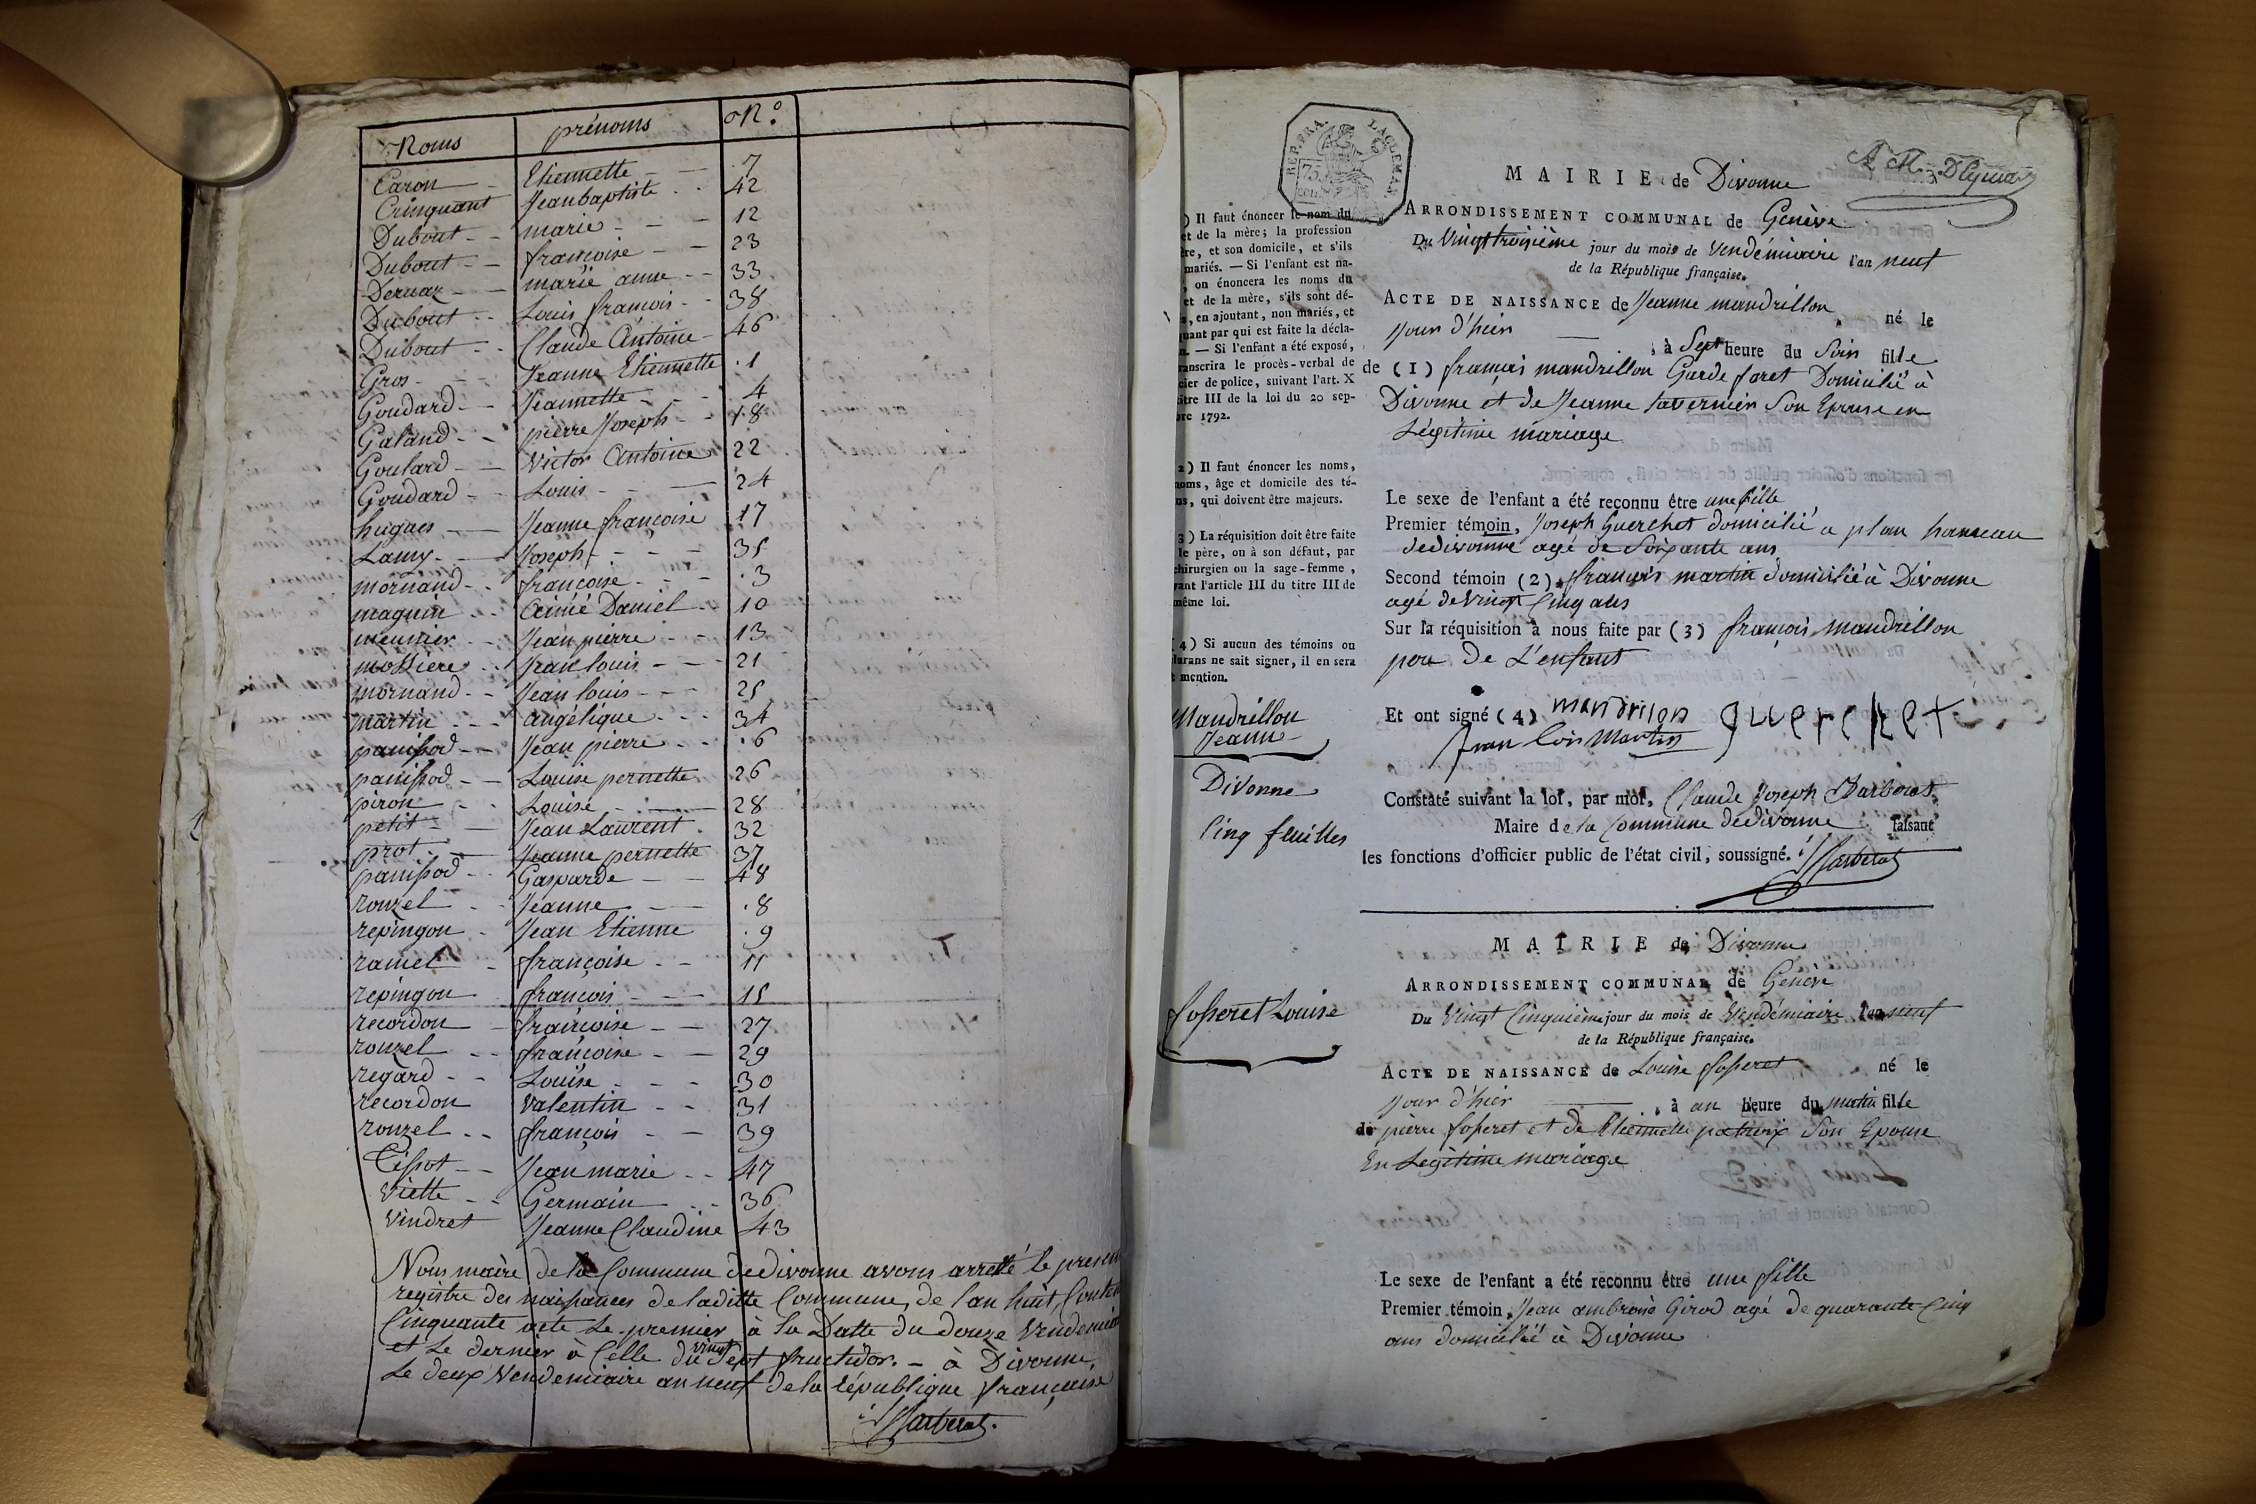 Noms prénoms N.º
Caron Etiennette 7
Crinquant Jean baptiste 42
Dubout marie 12
Dubout françoise 23
Dernaz marie anne 33
Dubout Louis françois 38
Dubout Claude Antoine 46
Gros Jeanne Etiennette 1
Goudard Jeannette 4
Galand pierre Joseph 18
Goulard Victor Antoine 22
Goudard Louis 24
hugues Jeanne françoise 17
Lamy Joseph 35
mornand françoise 3
magnin Aimé Daniel 10
meunier Jean pierre 13
mossiere Jean louis 21
mornand Jean louis 25
martin angélique 34
panissod Jean pierre 6
panissod Louise pernette 26
piron Louise 28
petit Jean Laurent 32
prot Jeanne pernette 37
panissod Gasparde 48
rouzel Jeanne 8
repingon Jean Etienne 9
ramel françoise 11
repingon françois 15
recordon françoise 27
rouzel françoise 29
regard Louise 30
recordon Valentin 31
rouzel françois 39
Tissot Jean marie 47
Viette Germain 36
Vindret Jeanne Claudine 43
Nous maire de la Commune de divonne avons arrêté le present
registre des naissances de laditte Commune, de l'an huit, Conten
Cinquante acte Le premier à la Datte du douze Vendemiai
et Le dernier à Celle du vingt Sept fructidor. - à Divonne
Le deux Vendemiaire an neuf de la république française
REP. FRA. 75 CEN. LAC LEMAN
MAIRIE de Divonne
ARRONDISSEMENT COMMUNAL de Genève
Du Vingt troisième jour du mois de Vendémiaire l'an neuf
de la République française.
ACTE DE NAISSANCE de Jeanne mandrillon né le
jour d'hier à Sept heure du Soir fille
de (1) françois mandrillon Garde foret Domicilié à
Divonne et de Jeanne tavernier Son Epouse en
Légitime mariage
Le sexe de l'enfant a été reconnu être une fille
Premier témoin, Joseph Guerchet domicilié a plan hameau
de divonne agé de Soixante ans
Second témoin (2), françois martin domicilié à Divonne
agé de Vingt Cinq ans
Sur la réquisition à nous faite par (3) françois mandrillon
pere de L'enfant
Et ont signé (4) mandrilon guerchet
fran çois Martin
Constaté suivant la loi, par moi, Claude Joseph Barberat
Maire de la Commune de divonne faisant
les fonctions d'officier public de l'état civil, soussigné.
) Il faut énoncer le nom du
et de la mère; la profession
ère, et son domicile, et s'ils
mariés. — Si l'enfant est na-
, on énoncera les noms du
et de la mère, s'ils sont dé-
s, en ajoutant, non mariés, et
quant par qui est faite la décla-
n. — Si l'enfant a été exposé,
ranscrira le procès-verbal de
cier de police, suivant l'art. X
itre III de la loi du 20 sep-
bre 1792.
2) Il faut énoncer les noms,
noms, âge et domicile des té-
ns, qui doivent être majeurs.
3) La réquisition doit être faite
le père, ou à son défaut, par
chirurgien ou la sage-femme,
vant l'article III du titre III de
même loi.
(4) Si aucun des témoins ou
larans ne sait signer, il en sera
t mention.
Mandrillon
Jeanne
Divonne
Cinq feuilles
fosseret Louise
MAIRIE de Divonne
ARRONDISSEMENT COMMUNAL de Genève
Du Vingt Cinquième jour du mois de Vendémiaire l'an neuf
de la République française.
ACTE DE NAISSANCE de Louise fosseret né le
jour d'hier , à un heure du matin fille
de pierre fosseret et de Etiennette patroix Son Epouse
En Legitime mariage
Le sexe de l'enfant a été reconnu être une fille
Premier témoin, Jean ambroise Girod agé de quarante Cinq
ans domicilié à Divonne